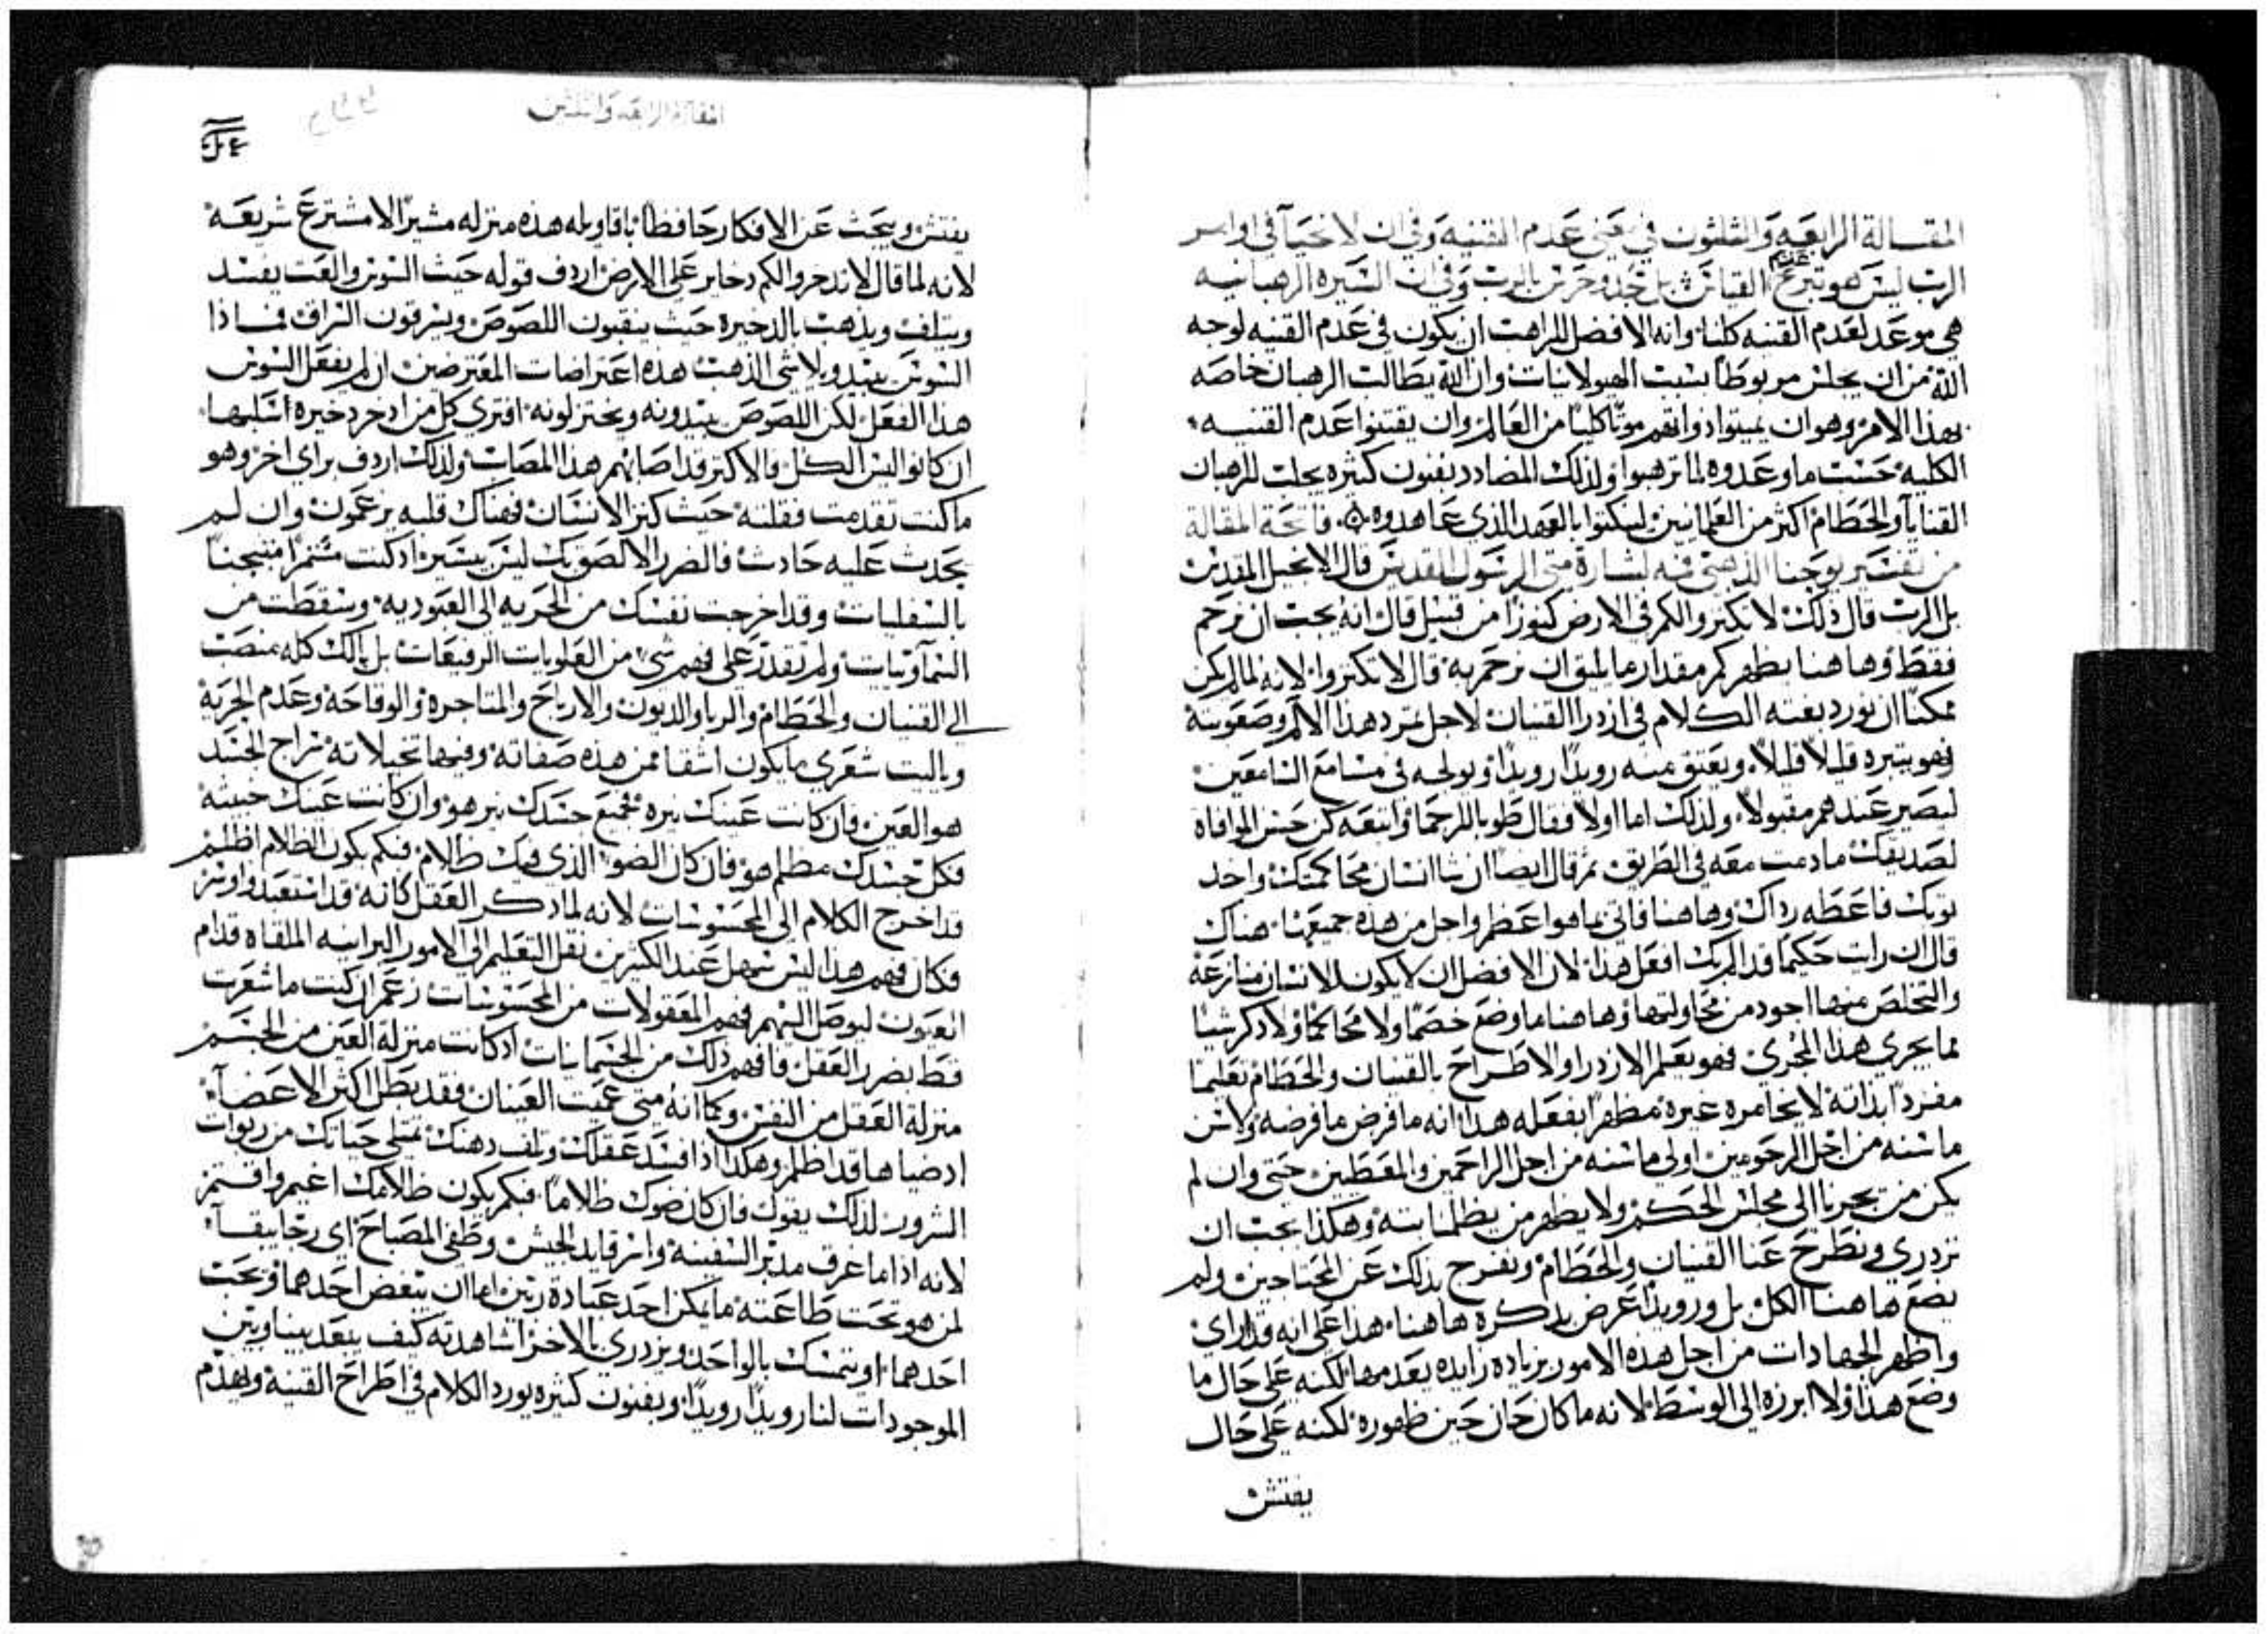 المقالة الرابعه والثلثون في معنى عدم القنيه وفي ان لا نحيا في اوامر
الرب ليس هو تبرع عدم القيانى بل حد وحرس بالرب وفي ان السيره الرهبانيه
هي موعد لعدم القنيه كلنا وانه الافضل للراهب ان يكون في عدم القنيه لوجه
الله من ان يجلس مربوطا بسبب الهيولانيات وان الله يطالب الرهبان خاصه
بهذا الامر وهو ان يميتوا ذواتهم موتا كليا من العالم وان يقتنوا عدم القنيه
الكليه حسب ما وعدوه لما ترهبوا ولذلك المضادد بفنون كثيره يجلب للرهبان
القنايا والحطام اكثر من العلمانيين لينكثوا بالعهد الذي عاهدوه فاتحة المقالة
من تفسير يوحنا الذهبي فمه لبشارة متى الرسول المقدس قال الانجيل المقدس
بل الرب قال ذلك لا تكنزوا لكم في الارض كنوزا من قبل قال انه يجب ان نرحم
فقط وها هنا يظهر كم مقدار ما يليق ان نرحم به قال لا تكنزوا لانه لما لم يكن
ممكنا ان يورد بغته الكلام في ازدرا القنيان لاجل تمرد هذا الالم وصعوبته
فهو يبرده قليلا قليلا ويعتق منه رويدا رويدا ويولجه في مسامع السامعين
ليصير عندهم مقبولا ولذلك اما اولا فقال طوبا للرحما واتبعه كن حسن الموافاه
لصديقك مادمت معه في الطريق ثم قال ايضا ان شا انسان محاكمتك واخد
توبك فاعطه رداك وها هنا فاتى بما هو اعظم واجل من هذه جميعها هناك
قال ان رايت حكيما قد المربك افعل هذا لان الافضل ان لا يكون للانسان منازعة
والتخلص منها اجود من محاولتها وها هنا ما وضع خصما ولا محاكما ولا ذكر شيا
مما يجري هذا المجرى فهو يعلم الازدرا والاطراح بالقنيان والحطام تعليما
مفردا بذاته لا يخامره غيره مظهرا بفعله هذا انه ما فرض ما فرضه ولا سن
ما سنه من اجل المرحومين اولى ما سنه من اجل الراحمين والمعطين حتى وان لم
يكن من يجرنا الى مجلس الحكم ولا يظهر من يظلمنا بته وهكذا يجب ان
نزدري ونطرح عنا القنيان والحطام ونفرح بذلك عن المحتاجين ولم
يضع ها هنا الكل بل ورويدا عرض بذكره ها هنا هذا على انه قد اراى
واظهر الجهادات من اجل هذه الامور بزياده زايده بعدمها لكنه على حال ما
وضع هذا ولا ابرزه الى الوسط لانه ما كان حان حين ظهوره لكنه على حال
يفتش
المقالة الرابعه والثلثين
يفتش ويبحث عن الافكار حافظا باقاويله هذه منزله مشيرا لا مشترع شريعه
لانه لما قال لا تدخروا لكم دخاير على الارض اردف قوله حيث السوس والعت يفسد
ويتلف ويذهب بالدخيره حيث ينقبون اللصوص ويسرقون السراق فماذا
السوس يبيد ويلاشي الذهب هذه اعتراضات المعترضين ان لم يفعل السوس
هذا الفعل لكن اللصوص يبيدونه ويختزلونه افترى كل من ادخر دخيره اسلبها
ان كانوا ليس الكل والاكثر قد اصابهم هذا المصاب ولذلك اردف براي اخر وهو
ما كنت تقدمت فقلته حيث كنز الانسان فهناك قلبه يزعمون وان لم
يحدث عليه حادث فالضرر الالصق بك ليس بيسير اذ كنت مسمرا منسجنا
بالسفليات وقد اخرجت نفسك من الحريه الى العبوديه وسقطت من
السماويات ولم تقدر على فهم شي من العلويات الرفيعات بل بالك كله منصب
الى القنيان والحطام والربا والديون والارباح والمتاجره والوقاحه وعدم الحرية
وياليت شعري ما يكون اشقا ممن هذه صفاته وفيها تخيلاته سراج الجسد
هو العين فان كانت عينك نيره فجميع جسدك نير هو وان كانت عينك خبيثه
فكل جسدك مظلم هو فان كان الضو الذي فيك ظلام فبكم يكون الظلام اظلم
قد اخرج الكلام الى المحسوسات لانه لما ذكر العقل كانه قد استعبد واوسر
فكان فهم هذا ليس بسهل عند الكثيرين نقل التعليم الى الامور البرانيه الملقاه قدام
العيون ليوصل اليهم فهم المعقولات من المحسوسات زعم ان كنت ما شعرت
قط بضرر العقل فافهم ذلك من الجسمانيات اذ كانت منزلة العين من الجسم
منزلة العقل من النفس وكما انه متى عميت العينان فقد بطل اكثر الاعضا
اد ضياها قد اظلم وهكذا ادا فسد عقلك وتلف دهنك تمتلي حياتك من ربوات
الشرور لذلك يقول فان كان ضوك ظلاما فبكم يكون ظلامك اغيم واقتم
لانه اذا ما غرق مدبر السفينه واسر قايد الجيش وطفي المصباح اي رجا يبقا
لمن هو تحت طاعته ما يمكن احد عبادة ربين اما ان يبغض احدهما ويحب
احدهما او يتمسك بالواحد ويزدري بالاخر اشاهدته كيف يبعد بيننا وبين
الموجودات لنا رويدا رويدا وبفنون كثيره يورد الكلام في اطراح القنيه ويهدم